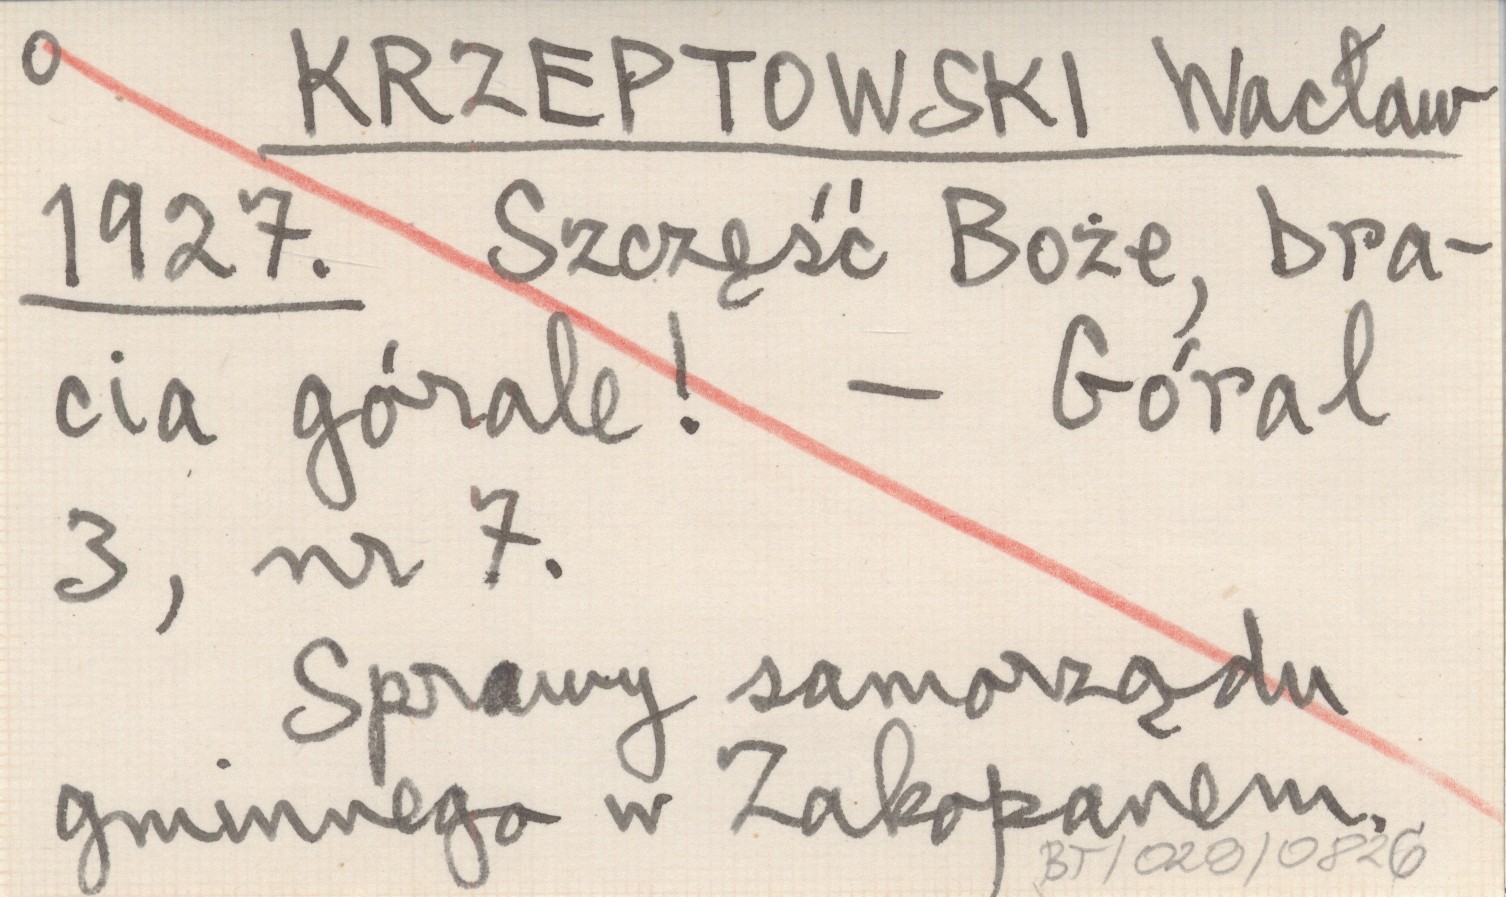 o KRZEPTOWSKI Wacław
1927. Szczęść Boże, bra-
cia górale! — Góral
3, nr 7.
Sprawy samorządu
gminnego w Zakopanem.
BT/028/0826